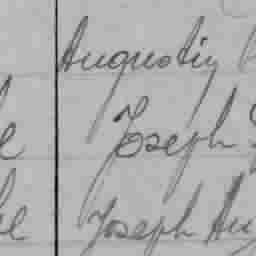 Augustin
Joseph
Joseph Aug